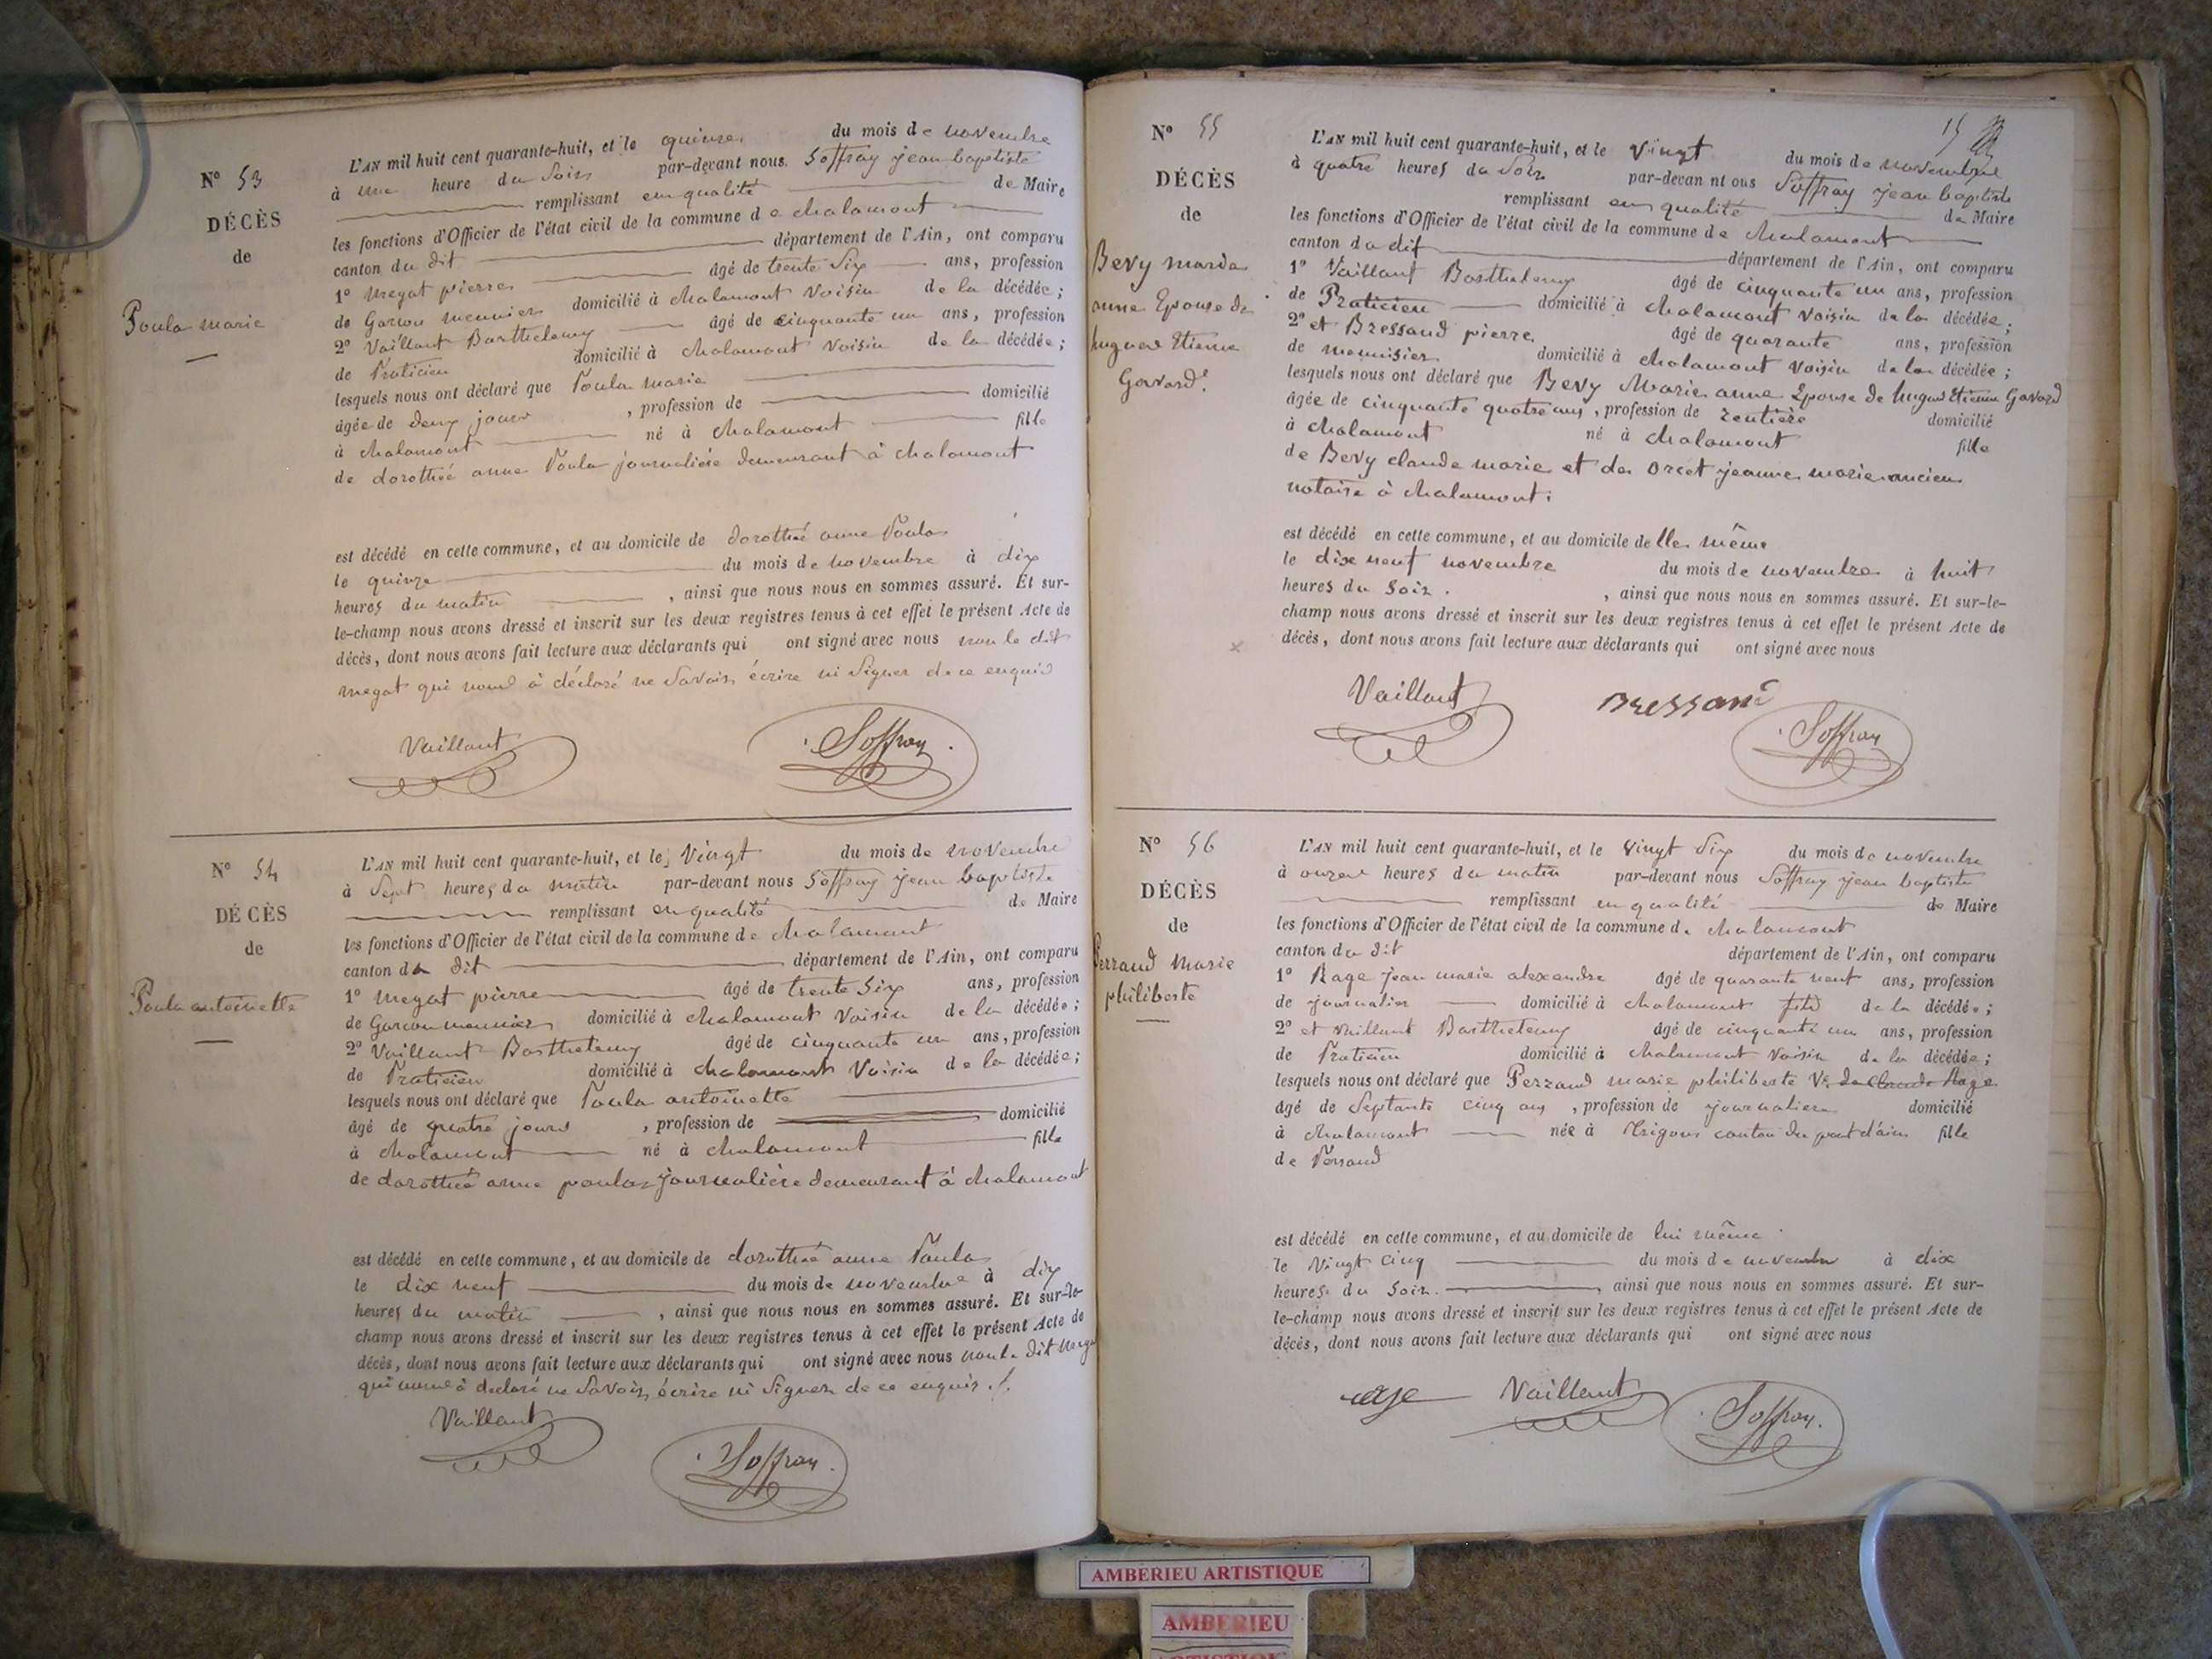 N° 53
DÉCÈS
de
Poula marie
L'AN mil huit cent quarante-huit, et le quinze du mois de novembre
à une heure du Soir par-devant nous Soffray jean baptiste
remplissant en qualité de Maire
les fonctions d'Officier de l'état civil de la commune de chalamont
canton du dit département de l'Ain, ont comparu
1° megat pierre âgé de trente Six ans, profession
de Garcon meunier domicilié à chalamont Voisin de la décédée;
2° Vaillant Barthelemy âgé de cinquante un ans, profession
de Praticien domicilié à chalamont Voisin de la décédée;
lesquels nous ont déclaré que Poula marie
âgée de deux jours, profession de domicilié
à chalamont né à chalamont fille
de dorothée anne Poula journalière demeurant à chalamont
est décédé en cette commune, et au domicile de dorothée anne Poula
le quinze du mois de novembre à dix
heures du matin, ainsi que nous nous en sommes assuré. Et sur-
le-champ nous avons dressé et inscrit sur les deux registres tenus à cet effet le présent Acte de
décès, dont nous avons fait lecture aux déclarants qui ont signé avec nous non le dit
megat qui nous à déclaré ne Savoir écrire ni Signer de ce enquis
Vaillant
Soffray
N° 54
DÉCÈS
de
Poula antoinette
L'AN mil huit cent quarante-huit, et le Vingt du mois de novembre
à Sept heures du matin par-devant nous Soffray jean baptiste
remplissant en qualité de Maire
les fonctions d'Officier de l'état civil de la commune de chalamont
canton du dit département de l'Ain, ont comparu
1° megat pierre âgé de trente Six ans, profession
de Garcon meunier domicilié à chalamont Voisin de la décédée;
2° Vaillant Barthelemy âgé de cinquante un ans, profession
de Praticien domicilié à chalamont Voisin de la décédée;
lesquels nous ont déclaré que Poula antoinette
âgé de quatre jours, profession de domicilié
à chalamont né à chalamont fille
de dorothée anne poula journalière demeurant à chalamont
est décédé en cette commune, et au domicile de dorothée anne Poula
le dix neuf du mois de novembre à dix
heures du matin, ainsi que nous nous en sommes assuré. Et sur-le-
champ nous avons dressé et inscrit sur les deux registres tenus à cet effet le présent Acte de
décès, dont nous avons fait lecture aux déclarants qui ont signé avec nous non le dit
qui nous à declaré ne Savoir écrire ni Signer de ce enquis
Vaillant
Soffray
15
N° 55
DÉCÈS
de
Bevy maria
anne Epouse de
hugues Etienne
Gavard
L'AN mil huit cent quarante-huit, et le Vingt du mois de novembre
à quatre heures du Soir par-devan nt ous Soffray jean baptiste
remplissant en qualité de Maire
les fonctions d'Officier de l'état civil de la commune de chalamont
canton du dit département de l'Ain, ont comparu
1° Vaillant Barthelemy âgé de cinquante un ans, profession
de Praticien domicilié à chalamont Voisin de la décédée;
2° et Bressand pierre âgé de quarante ans, profession
de menuisier domicilié à chalamont Voisin de la décédée;
lesquels nous ont déclaré que Bevy Marie anne Epouse de hugues Etienne Gavard
âgée de cinquante quatre ans, profession de rentière domicilié
à chalamont né à chalamont fille
de Bevy claude marie et de Orcet jeanne marie ancien
notaire à chalamont.
est décédé en cette commune, et au domicile de lle même
le dixe neuf novembre du mois de novembre à huit
heures du Soir, ainsi que nous nous en sommes assuré. Et sur-le-
champ nous avons dressé et inscrit sur les deux registres tenus à cet effet le présent Acte de
décès, dont nous avons fait lecture aux déclarants qui ont signé avec nous
Vaillant
Bressand
Soffray
N° 56
DÉCÈS
de
Perrand Marie
philiberte
L'AN mil huit cent quarante-huit, et le Vingt Six du mois de novembre
à onze heures du matin par-devant nous Soffray jean baptiste
remplissant en qualité de Maire
les fonctions d'Officier de l'état civil de la commune de chalamont
canton du dit département de l'Ain, ont comparu
1° Rage jean marie alexandre âgé de quarante neuf ans, profession
de journalier domicilié à chalamont fils de la décédée;
2° et Vaillant Barthelemy âgé de cinquante un ans, profession
de Praticien domicilié à chalamont Voisin de la décédée;
lesquels nous ont déclaré que Perrand marie philiberte Ve de Claude Rage
âgé de Septante cinq ans, profession de journaliere domicilié
à chalamont née à canton du pont d'ain fille
de Perrand
est décédé en cette commune, et au domicile de lui même
le Vingt cinq du mois de novembre à dix
heures du Soir. ainsi que nous nous en sommes assuré. Et sur-
le-champ nous avons dressé et inscrit sur les deux registres tenus à cet effet le présent Acte de
décès, dont nous avons fait lecture aux déclarants qui ont signé avec nous
rage
Vaillant
Soffray
AMBERIEU ARTISTIQUE
AMBERIEU
ARTISTIQUE